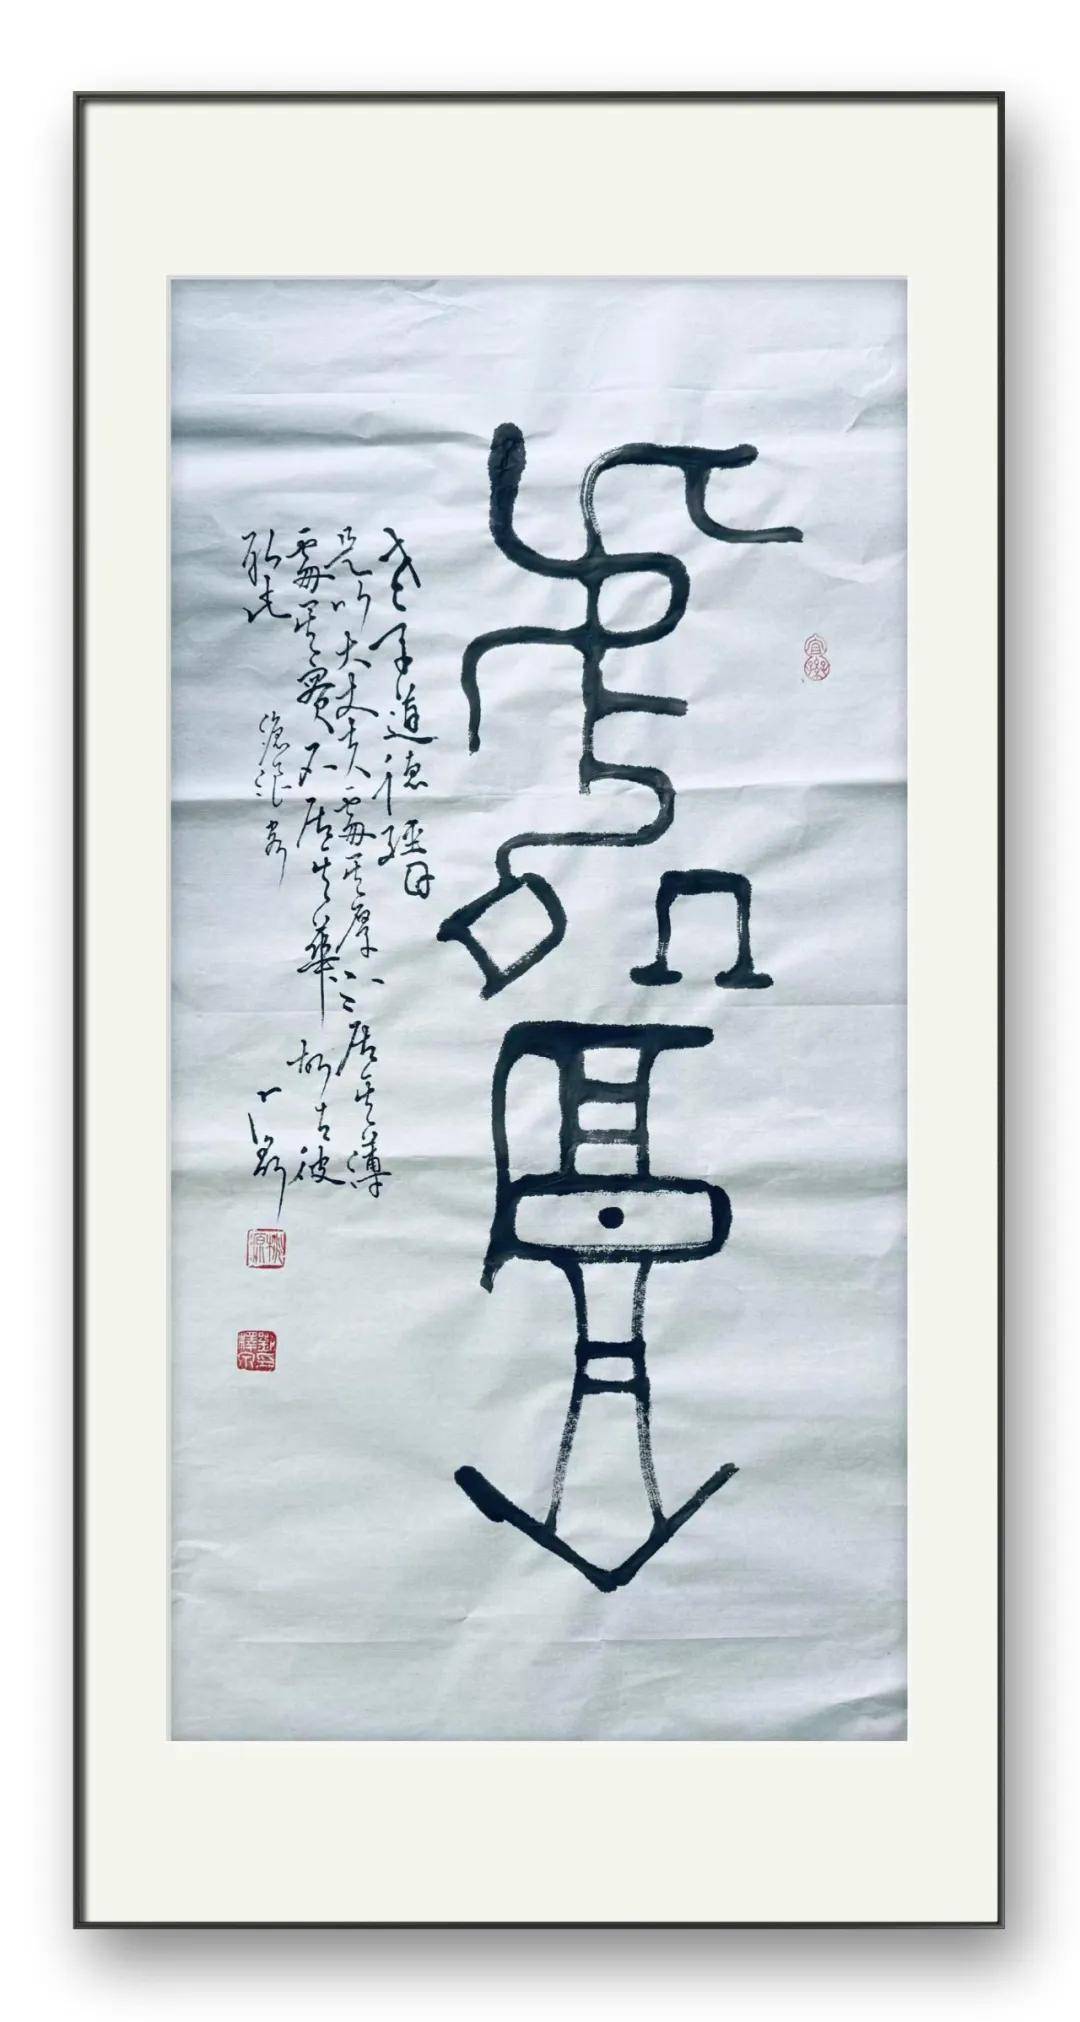 處厚
老子道德經曰
是以大丈夫處其厚不居其薄
處其實不居其華故去彼
取此